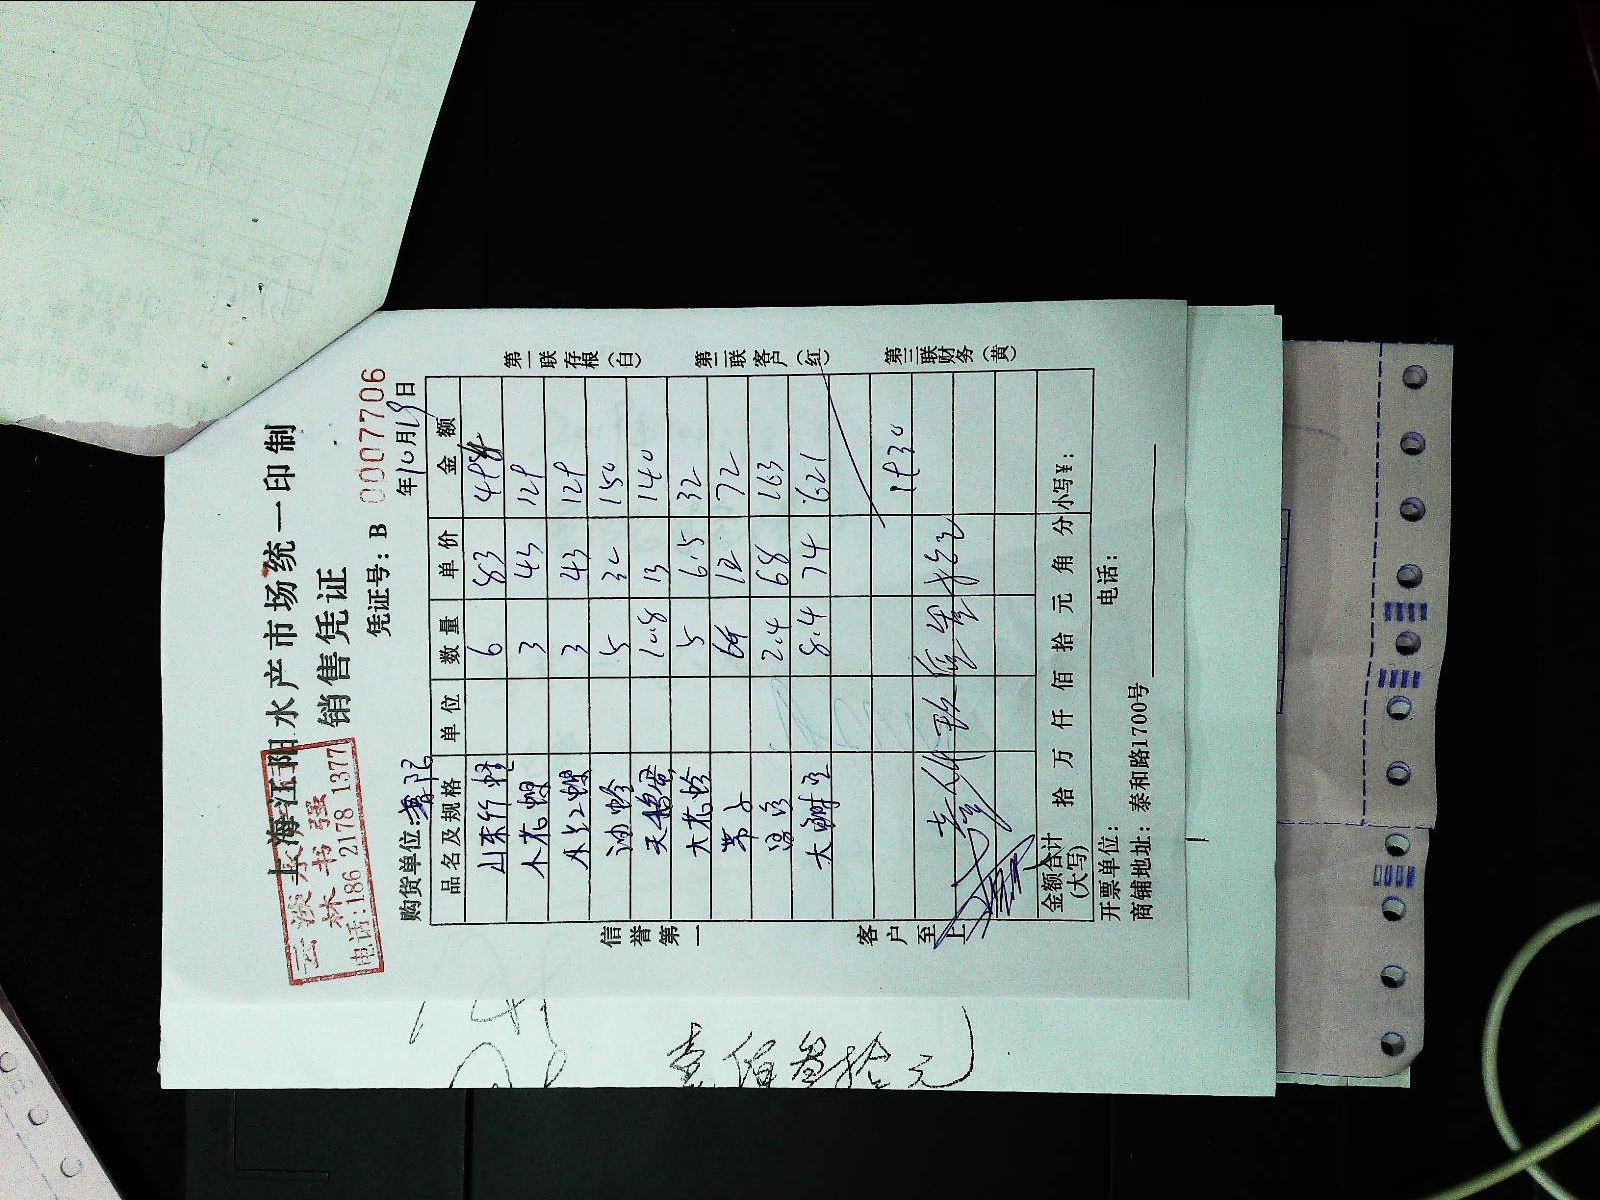 上海江阳水产市场统一印制
销售凭证
林书强
电话:186 2178 1377
凭证号:B 0007706
购货单位:
年10月19日
品名及规格 单位 数量 单价 金额
山东竹蛏 6 83 498
木花螺 3 43 129
水红螺 3 43 129
油蛤 5 30 150
天鹅蛋 10.8 13 140
大花蛤 5 6.5 32
茅子 6 12 72
2.4 68 163
大 8.4 74 621
1930
金额合计(大写) 拾 万 仟 佰 拾 元 角 分 小写¥:
开票单位: 电话:
商铺地址:泰和路1700号
信誉第一
客户至上
第一联存根(白)
第二联客户(红)
第三联财务(黄)
壹佰叁拾元